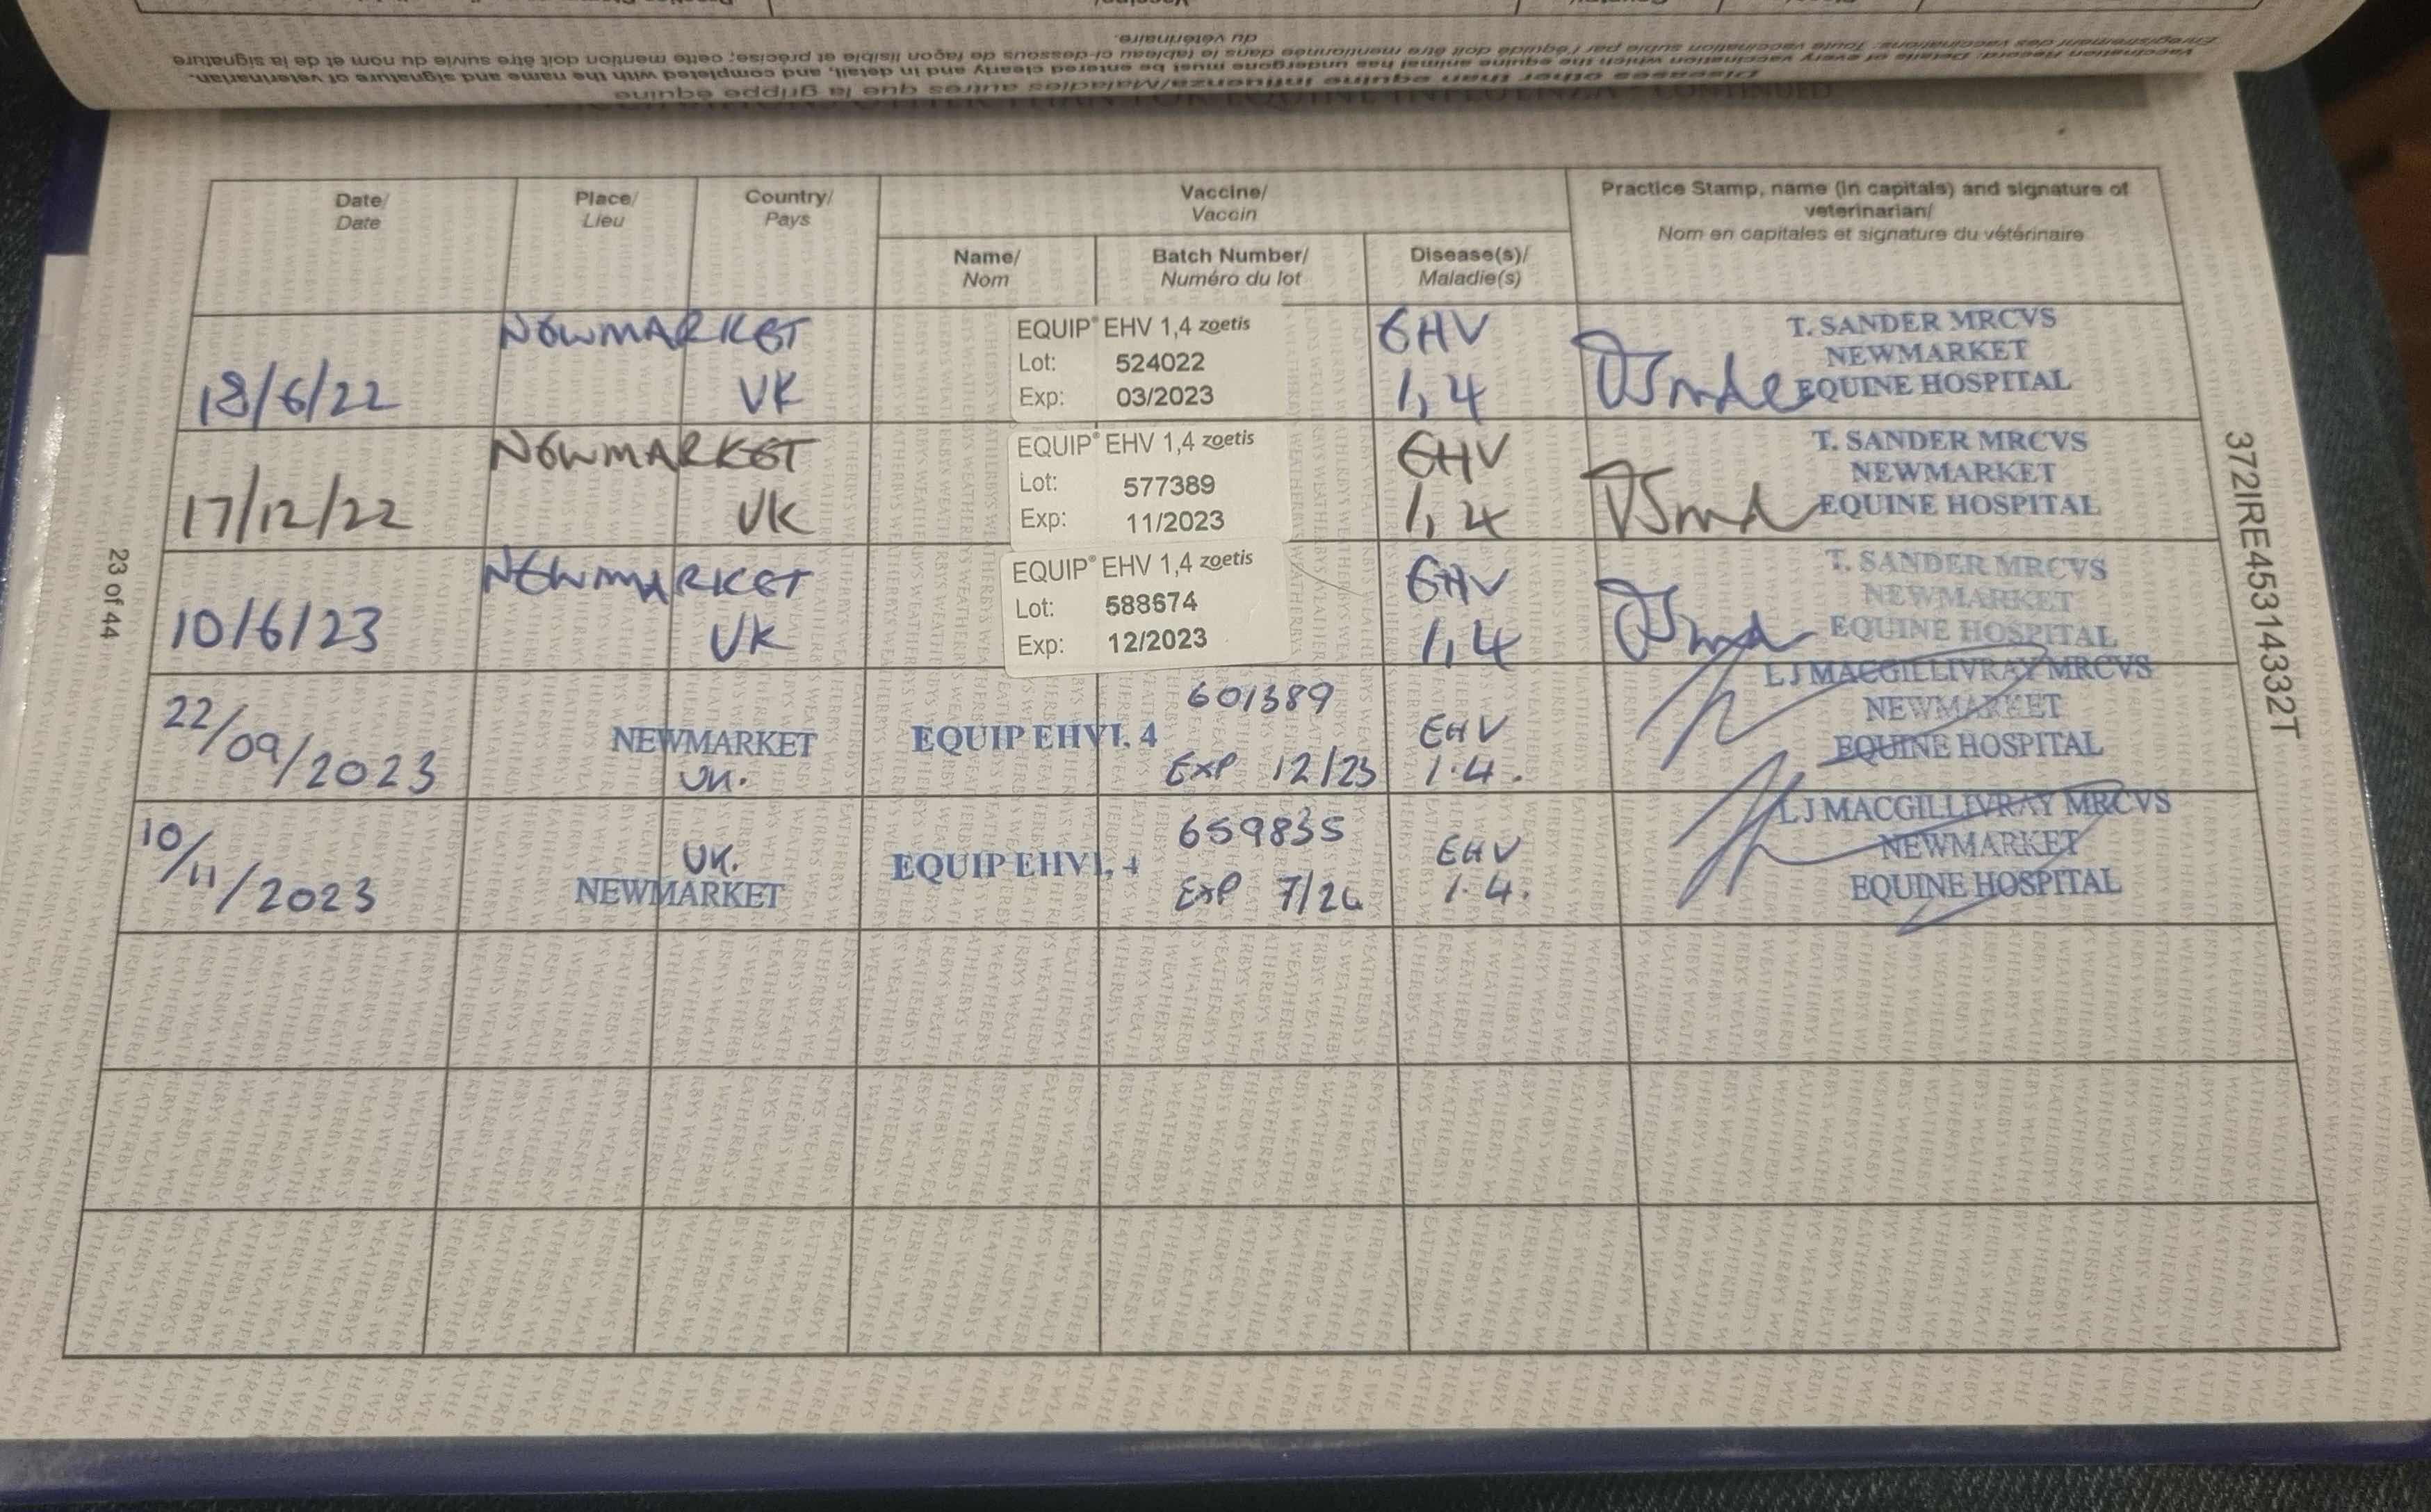 Diseases other than equine influenza/Maladies autres que la grippe équine
Vaccination Record: Details of every vaccination which the equine animal has undergone must be entered clearly and in detail, and completed with the name and signature of veterinarian.
Enregistrement des vaccinations: Toute vaccination subie par l'équidé doit être mentionnée dans le tableau ci-dessous de façon lisible et précise; cette mention doit être suivie du nom et de la signature
du vétérinaire.
OTHER THAN FOR EQUINE INFLUENZA CONTINUED
Date/
Date
Place/
Lieu
Country/
Pays
Vaccine/
Vaccin
Name/
Nom
Batch Number/
Numéro du lot
Disease(s)/
Maladie(s)
Practice Stamp, name (in capitals) and signature of
veterinarian/
Nom en capitales et signature du vétérinaire
18/6/22
NEWMARKET
UK
EQUIP® EHV 1,4 zoetis
Lot: 524022
Exp: 03/2023
EHV
1,4
T. SANDER MRCVS
NEWMARKET
EQUINE HOSPITAL
17/12/22
NEWMARKET
UK
EQUIP® EHV 1,4 zoetis
Lot: 577389
Exp: 11/2023
EHV
1,4
T. SANDER MRCVS
NEWMARKET
EQUINE HOSPITAL
10/6/23
NEWMARKET
UK
EQUIP® EHV 1,4 zoetis
Lot: 588674
Exp: 12/2023
EHV
1,4
T. SANDER MRCVS
NEWMARKET
EQUINE HOSPITAL
22/09/2023
NEWMARKET
UK.
EQUIP EHV1, 4
601389
EXP 12/23
EHV
1.4.
L J MACGILLIVRAY MRCVS
NEWMARKET
EQUINE HOSPITAL
10/11/2023
UK.
NEWMARKET
EQUIP EHV1, 4
659835
EXP
EHV
1.4.
L J MACGILLIVRAY MRCVS
NEWMARKET
EQUINE HOSPITAL
23 of 44
372IRE45314332T